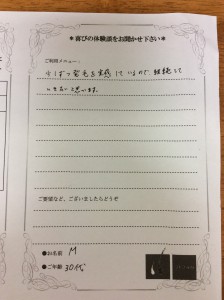 ＊喜びの体験談をお聞かせ下さい＊
ご利用メニュー：
そばつ発毛を実感しているので 継続して
いきたいと思います。
ご要望など、ございましたらどうぞ
●お名前 M
●ご年齢 30代